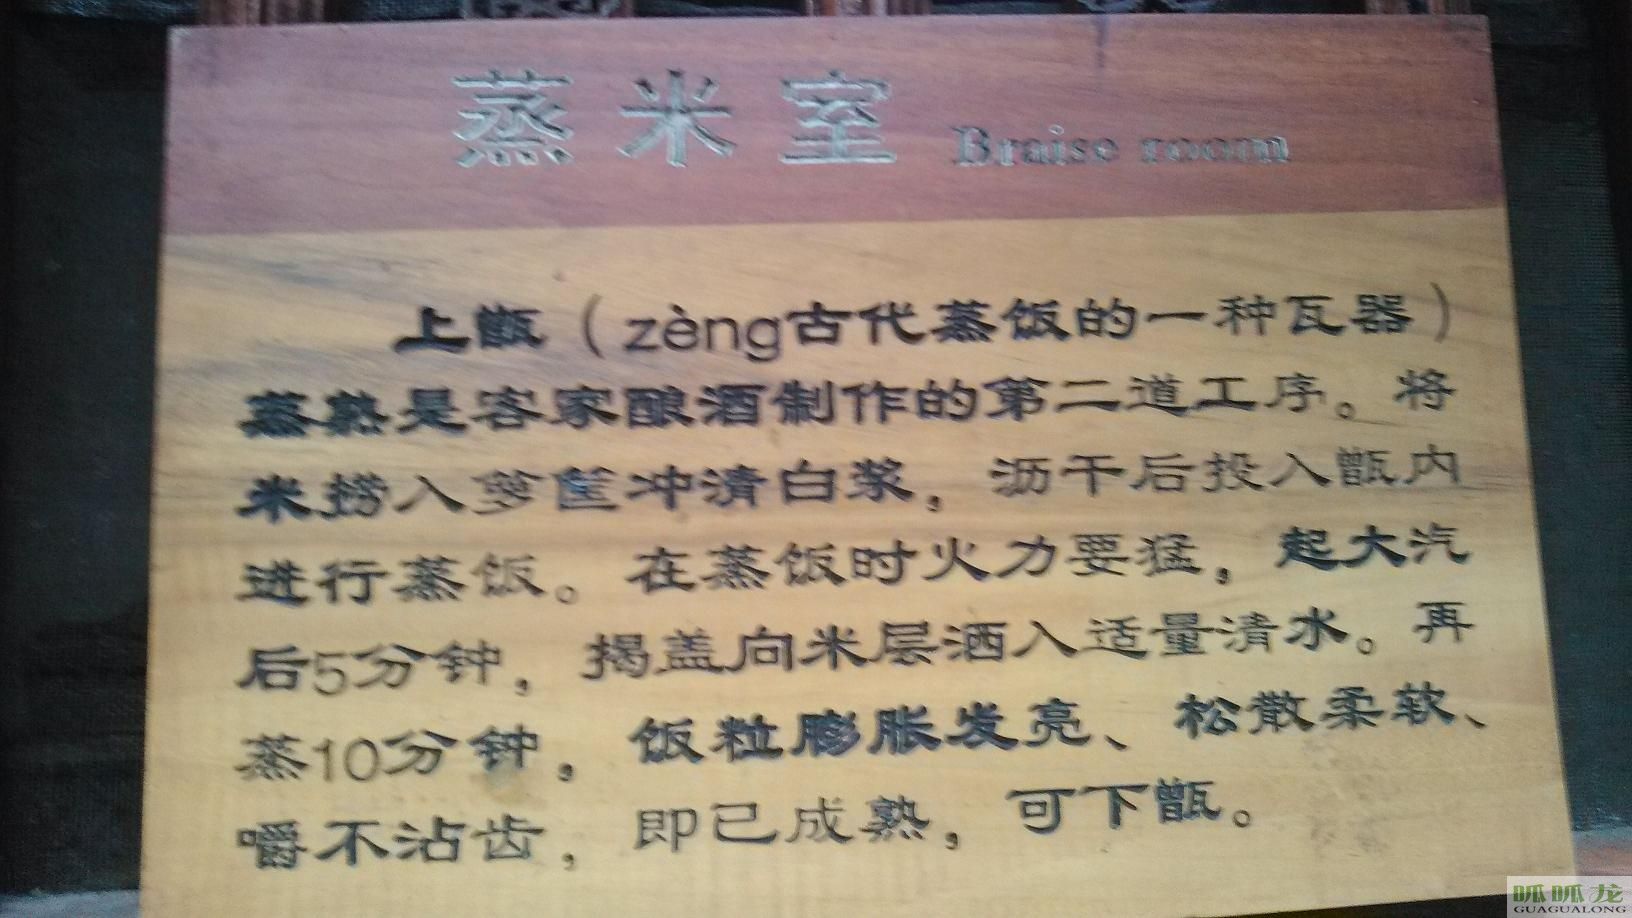 蒸米室 Braise room
上甑（zèng古代蒸饭的一种瓦器）
蒸熟是客家酿酒制作的第二道工序。将
米捞入箩筐冲清白浆，沥干后投入甑内
进行蒸饭。在蒸饭时火力要猛，起大汽
后5分钟，揭盖向米层洒入适量清水。再
蒸10分钟，饭粒膨胀发亮、松散柔软、
嚼不沾齿，即已成熟，可下甑。
呱呱龙
GUAGUALONG